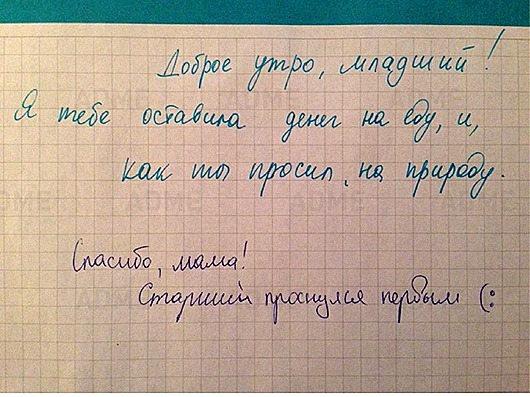 Доброе утро, младший!
Я тебе оставила денег на еду, и,
как ты просил, на природу.
Спасибо, мама!
Старший проснулся первым (:
ADME